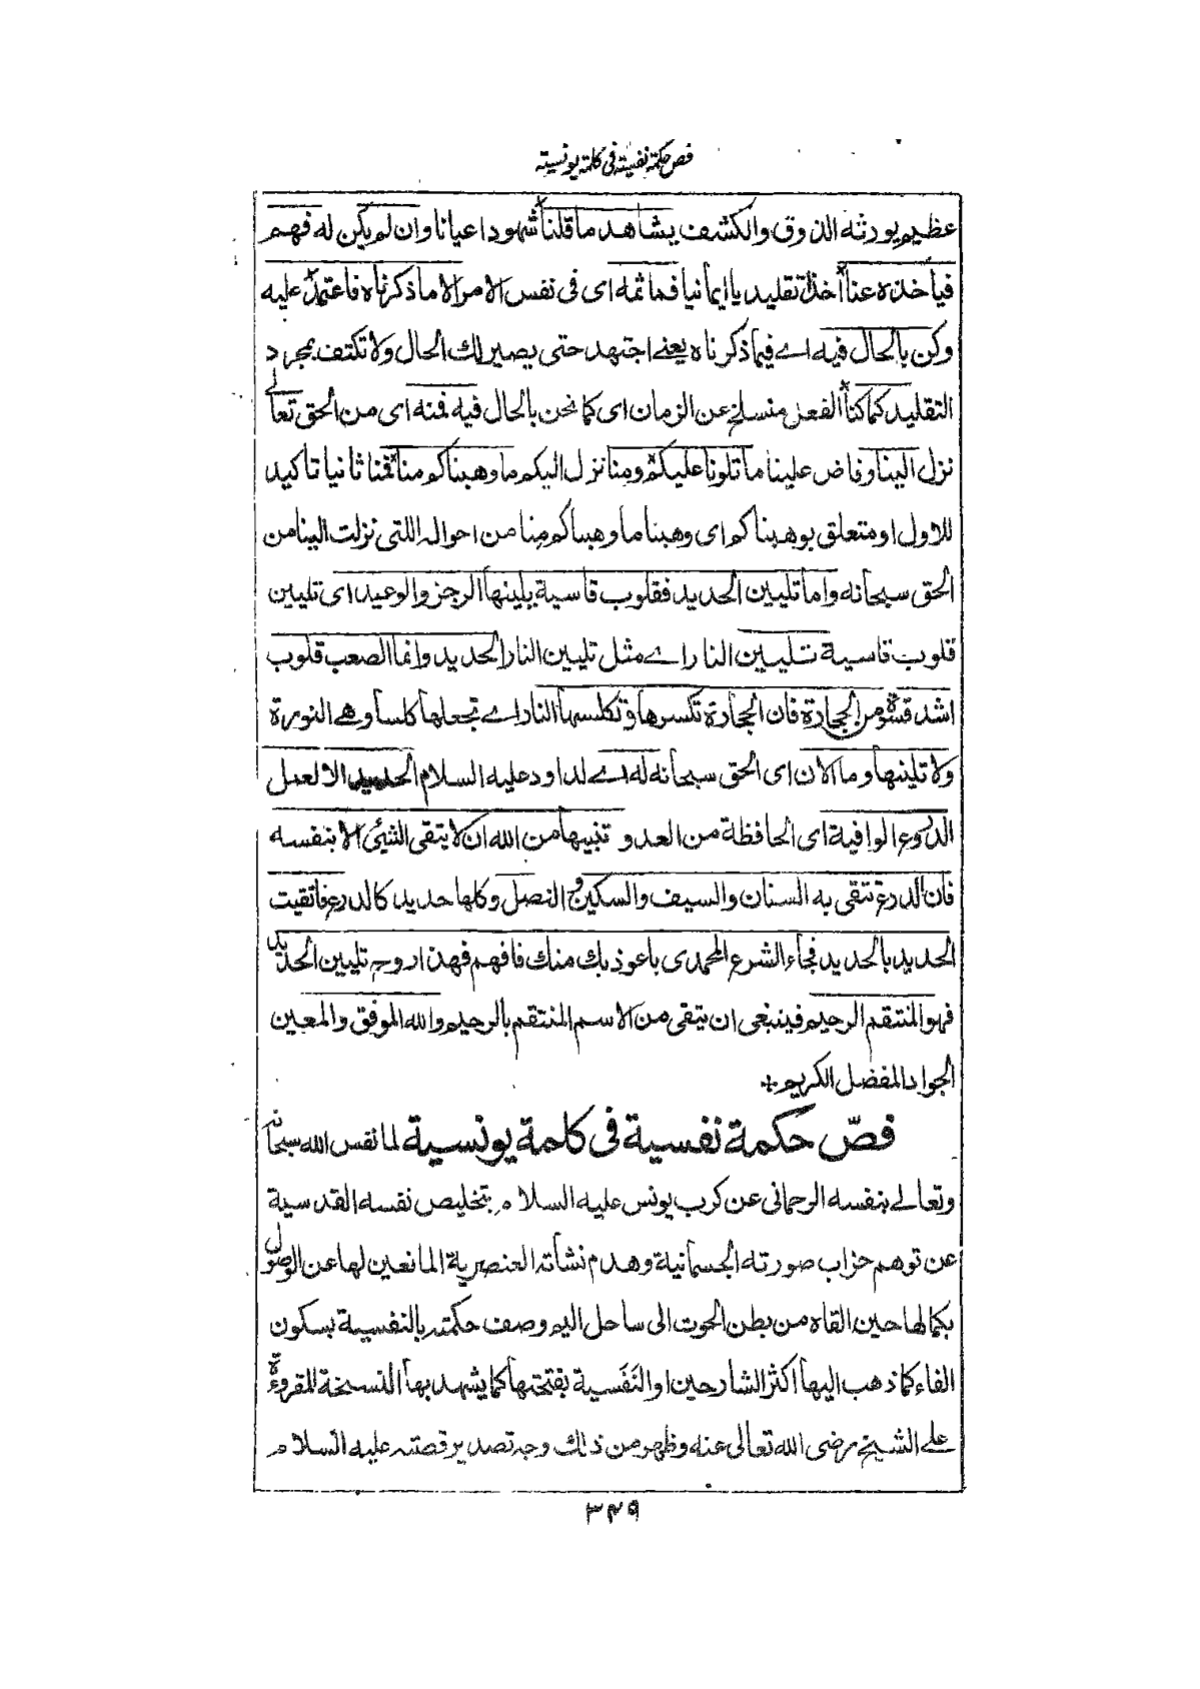 فص حكمة نفسية فى كلمة يونسية
عظيم يورثه الذوق والكشف يشاهد ما قلنا شهودا عيانا وان لم يكن له فهم
فيأخذه عنا اخذا تقليديا ايمانيا فما ثمه اى فى نفس الامر الا ما ذكرناه فاعتمد عليه
وكن بالحال فيه اے فيما ذكرناه يعنے اجتهد حتى يصير لك الحال ولا تكتف بمجرد
التقليد كما كنا الفعل منسلخ عن الزمان اى كما نحن بالحال فيه فمنه اى من الحق تعالى
نزل الينا وفاض علينا ما تلونا عليكم ومنا نزل اليكم ما وهبناكم منا فمنا ثانيا تاكيد
للاول او متعلق بوهبناكم اى وهبنا ما وهبناكم منا من احواله اللتى نزلت الينا من
الحق سبحانه واما تليين الحديد فقلوب قاسية يلينها الزجر والوعيد اى تليين
قلوب قاسية تليين النار اے مثل تليين النار الحديد وانما الصعب قلوب
اشد قسوة من الحجارة فان الحجارة تكسرها وتكلسها النار اے تجعلها كلسا وهے النورة
ولا تلينها وما الان اى الحق سبحانه له اے لداود عليه السلام الحديد الا لعمل
الدروع الوافية اى الحافظة من العدو تنبيها من الله ان لا يتقى الشيئ الا بنفسه
فان الدرع تتقى به السنان والسيف والسكين و النصل وكلها حديد كالدرع فاتقيت
الحديد بالحديد فجاء الشرع المحمدى باعوذ بك منك فافهم فهذا روح تليين الحديد
فهو المنتقم الرحيم فينبغى ان يتقى من الاسم المنتقم بالرحيم والله الموفق والمعين
الجواد المفضل الكريم
فصّ حكمة نفسية فى كلمة يونسية لما نفس الله سبحانه
وتعالے بنفسه الرحمانى عن كرب يونس عليه السلام بتخليص نفسه القدسية
عن توهم خراب صورته الجسمانية وهدم نشأته العنصرية المانعين لها عن الوصول
بكمالها حين القاه من بطن الحوت الى ساحل اليم وصف حكمته بالنفسية بسكون
الفاء كما ذهب اليها اكثر الشارحين او النَفَسية بفتحتها كما يشهد بها النسخة المقروءة
علے الشيخ رضى الله تعالى عنه وظهر من ذلك وجه تصدير قصته عليه السلام
٣٤٩